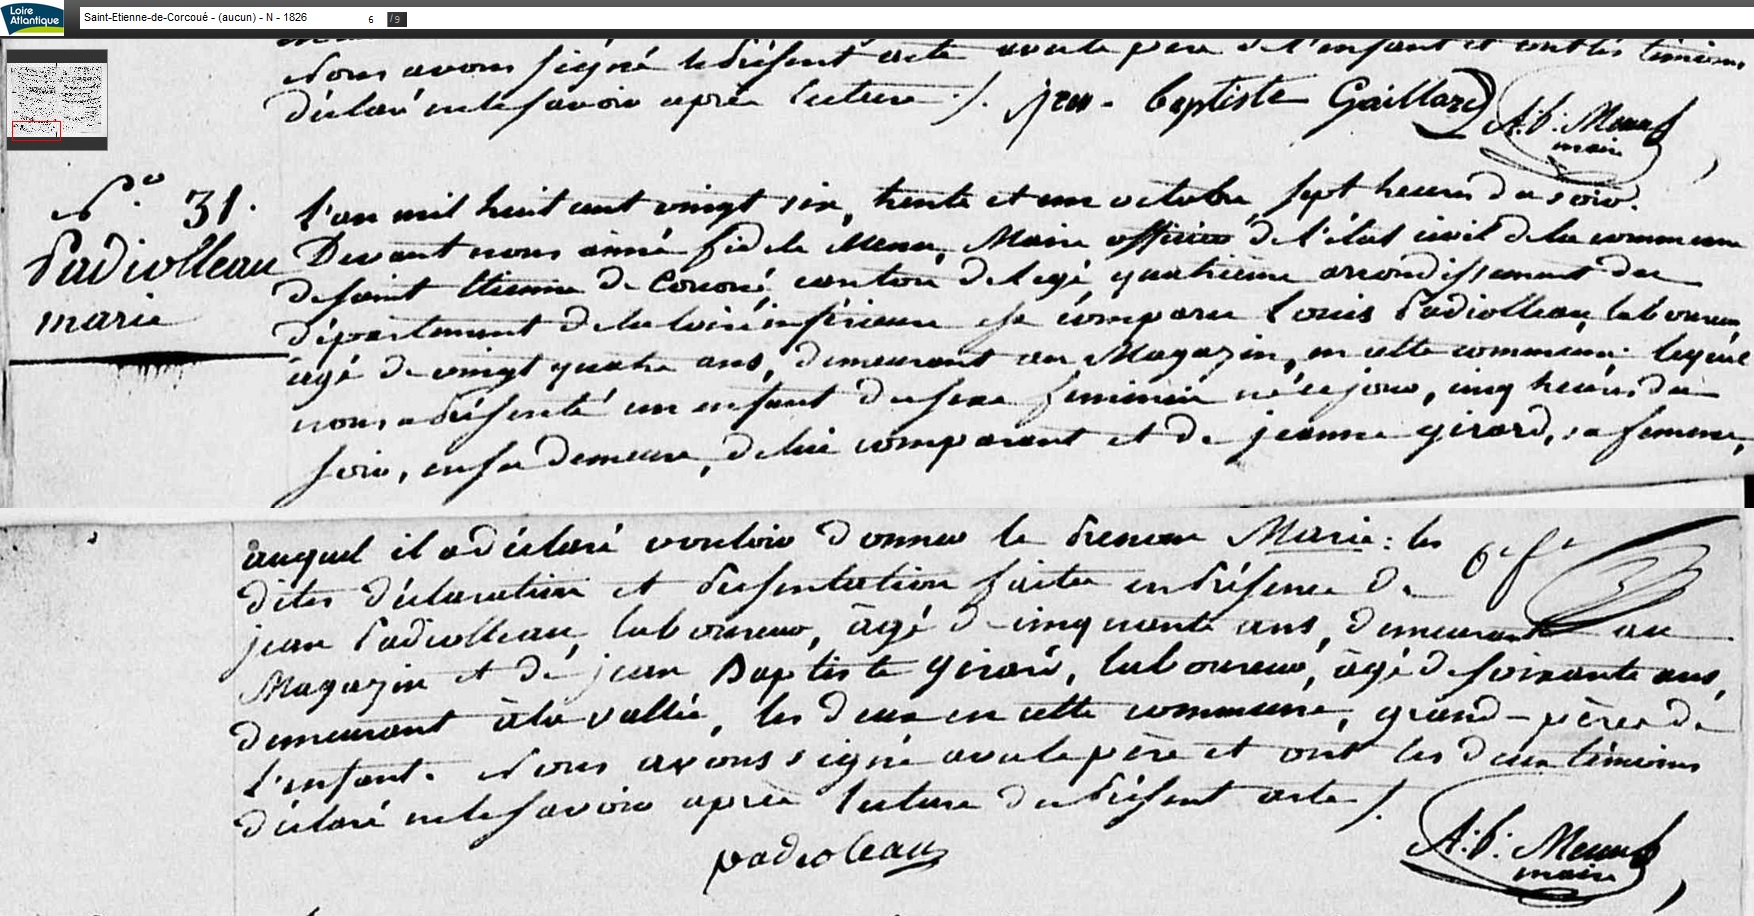 Loire
Atlantique
Saint-Etienne-de-Corcoué - (aucun) - N - 1826
6 / 9
Nous avons signé le présent acte avec le père de l'enfant et ont les témoins
déclaré ne le savoir après lecture ./. jean - baptiste Gaillard A. f. Menu
maire
N.o 31.
Padiolleau
marie
L'an mil huit cent vingt six, trente et un octobre sept heures du soir.
Devant nous aimé fidele Menu, Maire officier de l'état civil de la commune
de saint Etienne de Corcoué canton de legé quatrième arrondissement du
département de la loire inférieure est comparu Louis Padiolleau, laboureur,
âgé de vingt quatre ans, demeurant au Magazin, en cette commune; lequel
nous a présenté un enfant du sexe feminin né ce jour, cinq heures du
soir, en sa demeure, de lui comparant et de jeanne girard, sa femme,
auquel il a déclaré vouloir donner le prenom Marie: les
dites déclaration et présentation faites en présence de
jean Padiolleau, laboureur, âgé de cinquante ans, demeurant au
Magazin et de jean Baptiste girard, laboureur, âgé de soixante ans,
demeurant à la vallée, les deux en cette commune, grand-pères de
l'enfant. Nous avons signé avec le père et ont les deux témoins
déclaré ne le savoir après lecture du présent acte ./.
padioleau
A. f. Menu
maire